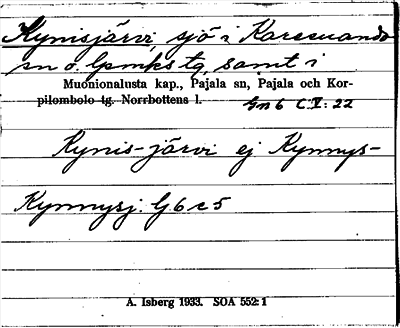 Kynisjärvi, sjö i Karesuando
sn o. lpmks tg, samt i
Muonionalusta kap., Pajala sn, Pajala och Kor-
pilombolo tg. Norrbottens l.
Gn 6 C V: 22
Kynis-järvi ej Kynnys-
Kynnysj. G 6 c 5
A. Isberg 1933. SOA 552:1